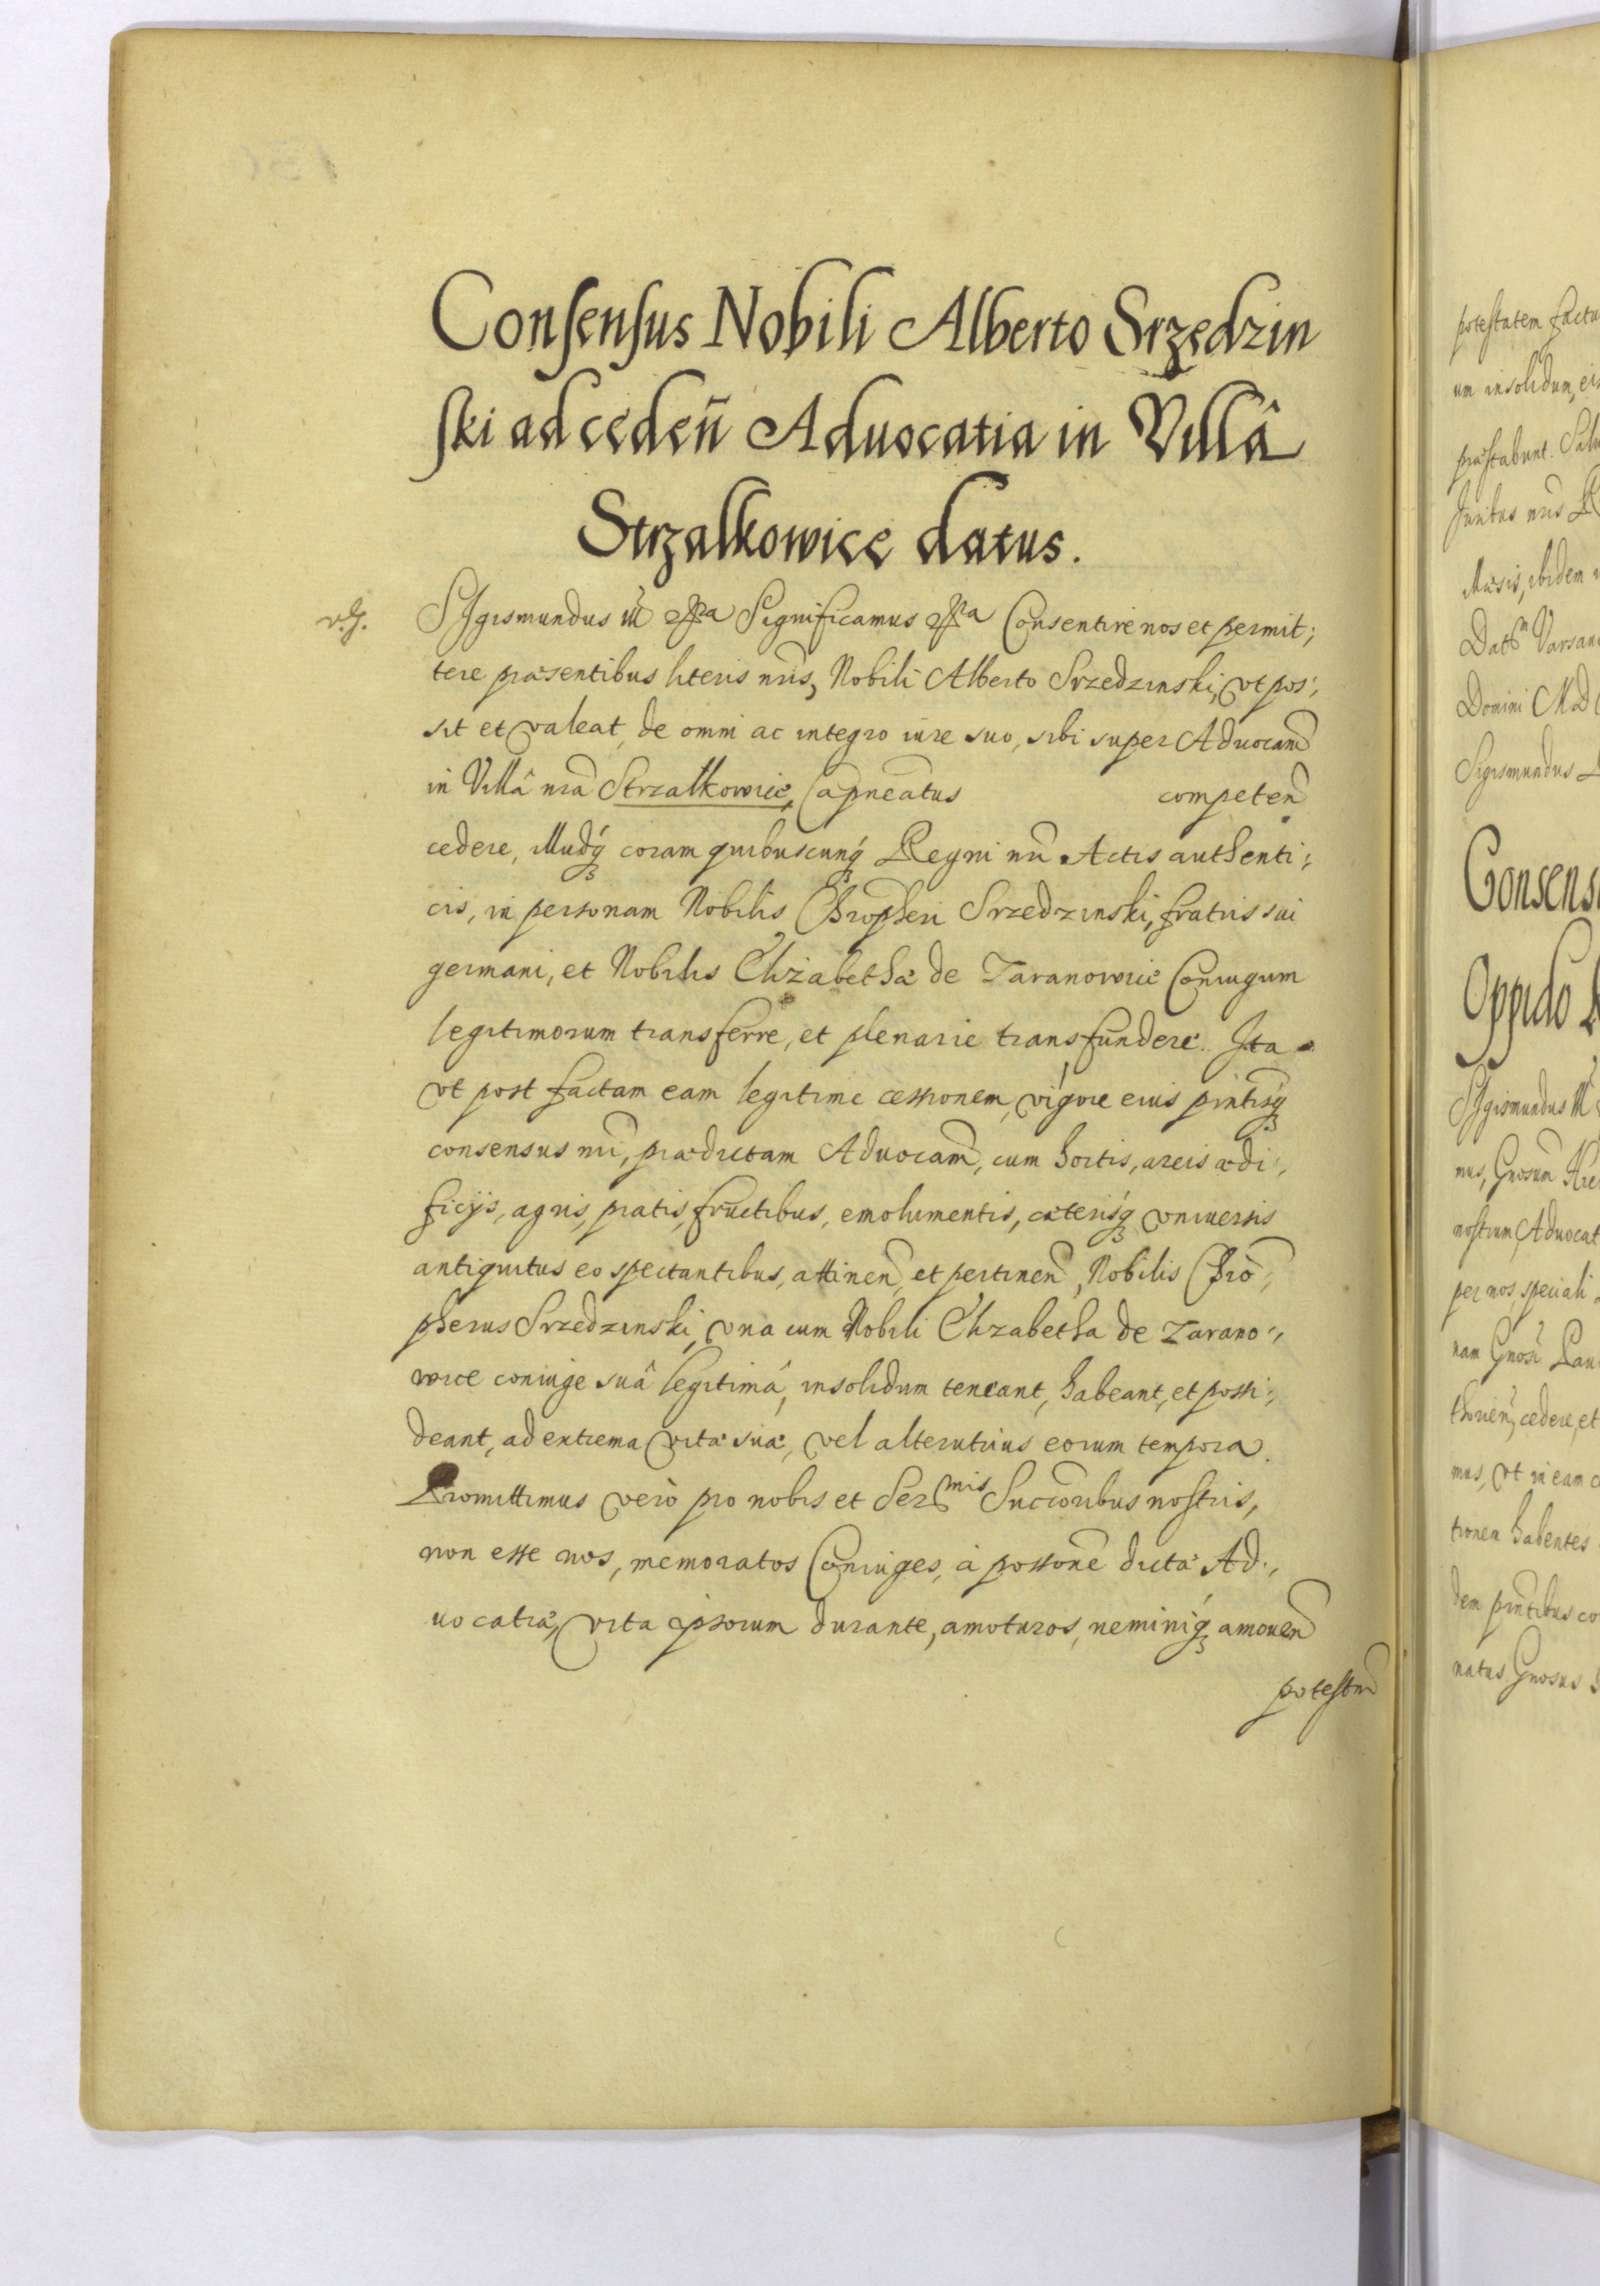 Consensus Nobili Alberto Srzedzin
ski ad cedeñ Aduocatia in Villâ
Strzalkowice datus.
SIgismundus Significamus Consentire nos et permit;
tere præsentibus literis nris, Nobili Alberto Srzedzinski, vt pos;
sit et valeat, de omni ac integro iure suo, sibi super Aduocam̃
in Villâ nrã Strzalkowice, Capneatus competeñ
cedere, illudq̃ coram quibuscunq̃ Regni nri Actis authenti;
cis, in personam Nobilis Chropheri Srzedzinski, fratris sui
germani, et Nobilis Elizabethæ de Zaranowice Coniugum
legitimorum transferre, et plenarie transfundere. Ita
vt post factam eam legitime cessionem, vigore eius pñtisq̃
consensus nri, prædictam Aduocam̃, cum hortis, areis ædi;
ficijs, agris, pratis, fructibus, emolumentis, cæterisq̃ vniuersis
antiquitus eo spectantibus, attineñ, et pertineñ, Nobilis Chro;
pherus Srzedzinski, vna cum Nobili Elizabetha de Zarano;
wice coniuge suâ legitimâ, insolidum teneant, habeant, et possi;
deant, ad extrema vitæ suæ, vel alterutrius eorum tempora.
Promittimus verò pro nobis et Ser mis Succoribus nostris,
non esse nos, memoratos Coniuges, à possone dictæ Ad;
uocatiæ, vita ipsorum durante, amoturos, neminiq̃ amoueñ
potestm̃
potestatem factu
um insolidum, ei
præstabunt. Salu
Juribus nris R
ibidem
Dat Varsau
Domini MD
Sigismundus
Consens
Oppido
SIgismundus
nus, Gnosum
nostrum, Aduocat
per nos, speciali
nam Gnosi Pau
cedere, et
mus, vt in eam c
tionem habentes
dem pñtibus co
natus Gnosus